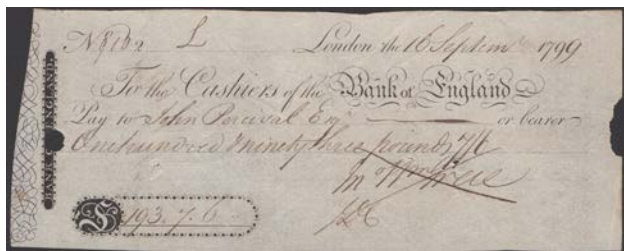 No 8102 L London the 16 Septemr 1799
To the Cashiers of the Bank of England
Pay to John Percival Esqr or bearer
One hundred & ninety three pounds 7/6
BANK OF ENGLAND
£ 193.7.6